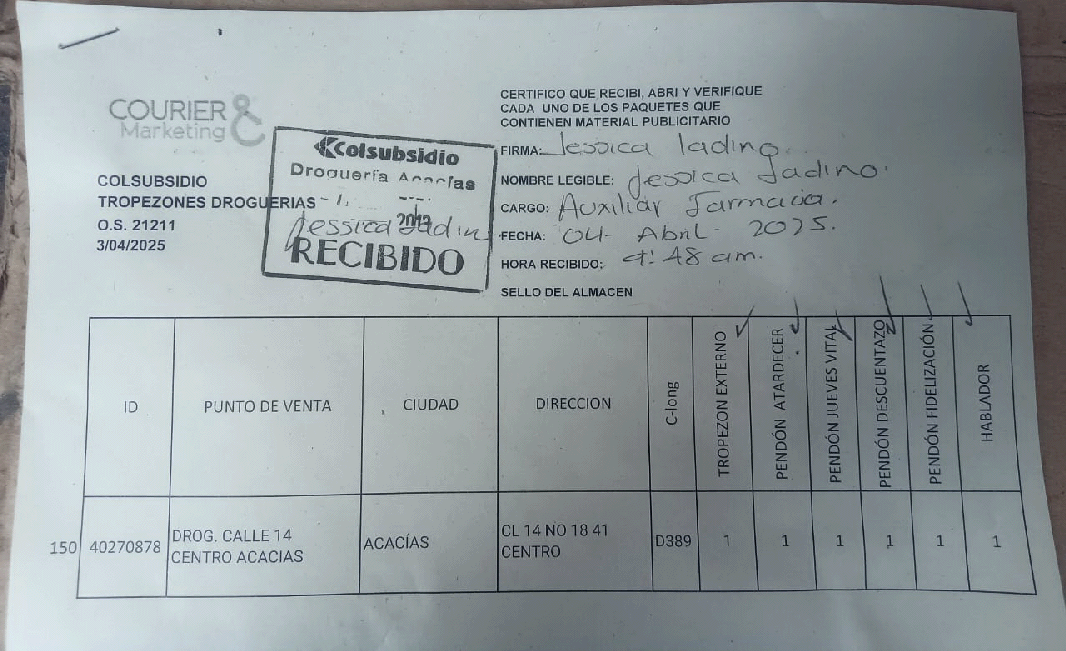 COURIER &
Marketing
COLSUBSIDIO
TROPEZONES DROGUERIAS
O.S. 21211
3/04/2025
Colsubsidio
Droguería Acacias
2013
Jessica Ladin
RECIBIDO
CERTIFICO QUE RECIBI, ABRI Y VERIFIQUE
CADA UNO DE LOS PAQUETES QUE
CONTIENEN MATERIAL PUBLICITARIO
FIRMA: Jessica ladino.
NOMBRE LEGIBLE: Jessica Ladino.
CARGO: Auxiliar Farmacia.
FECHA: 04 Abril 2025.
HORA RECIBIDO: 48 am.
SELLO DEL ALMACEN
ID PUNTO DE VENTA CIUDAD DIRECCION C-long TROPEZON EXTERNO PENDÓN ATARDECER PENDÓN JUEVES VITAL PENDÓN DESCUENTAZO PENDÓN FIDELIZACIÓN HABLADOR
150 40270878 DROG. CALLE 14 CENTRO ACACIAS ACACÍAS CL 14 NO 18 41 CENTRO D389 1 1 1 1 1 1